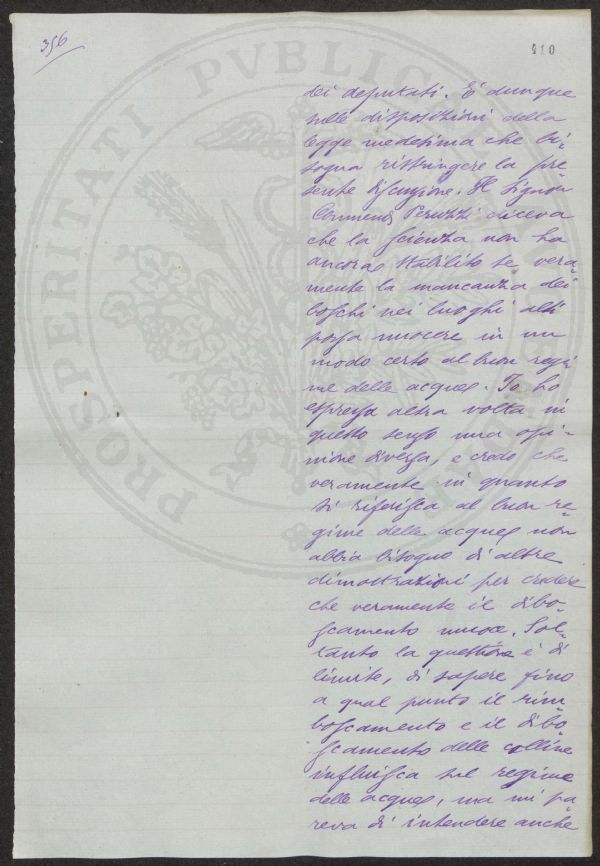 356
410
dei deputati. È dunque
sulle disposizioni della
legge medesima che bi-
sogna ristringere la pre-
sente discuzione. Il Signor
Commend. Peruzzi diceva
che la scienza non ha
ancora stabilito se vera-
mente la mancanza dei
boschi nei luoghi alti
possa nuocere in un
modo certo al buon regi-
me delle acque. Io ho
espressa altra volta in
questo senso una opi-
nione diversa, e credo che
veramente in quanto
si riferisca al buon re-
gime delle acque non
abbia bisogno di altre
dimostrazioni per credere
che veramente il dibo-
scamento nuoce. Sol-
tanto la questione è di
limite, di sapere fino
a qual punto il rim-
boscamento e il dibo-
scamento delle colline
influisca sul regime
delle acque, ma mi pa-
reva di intendere anche
PROSPERITATI PVBLICAE